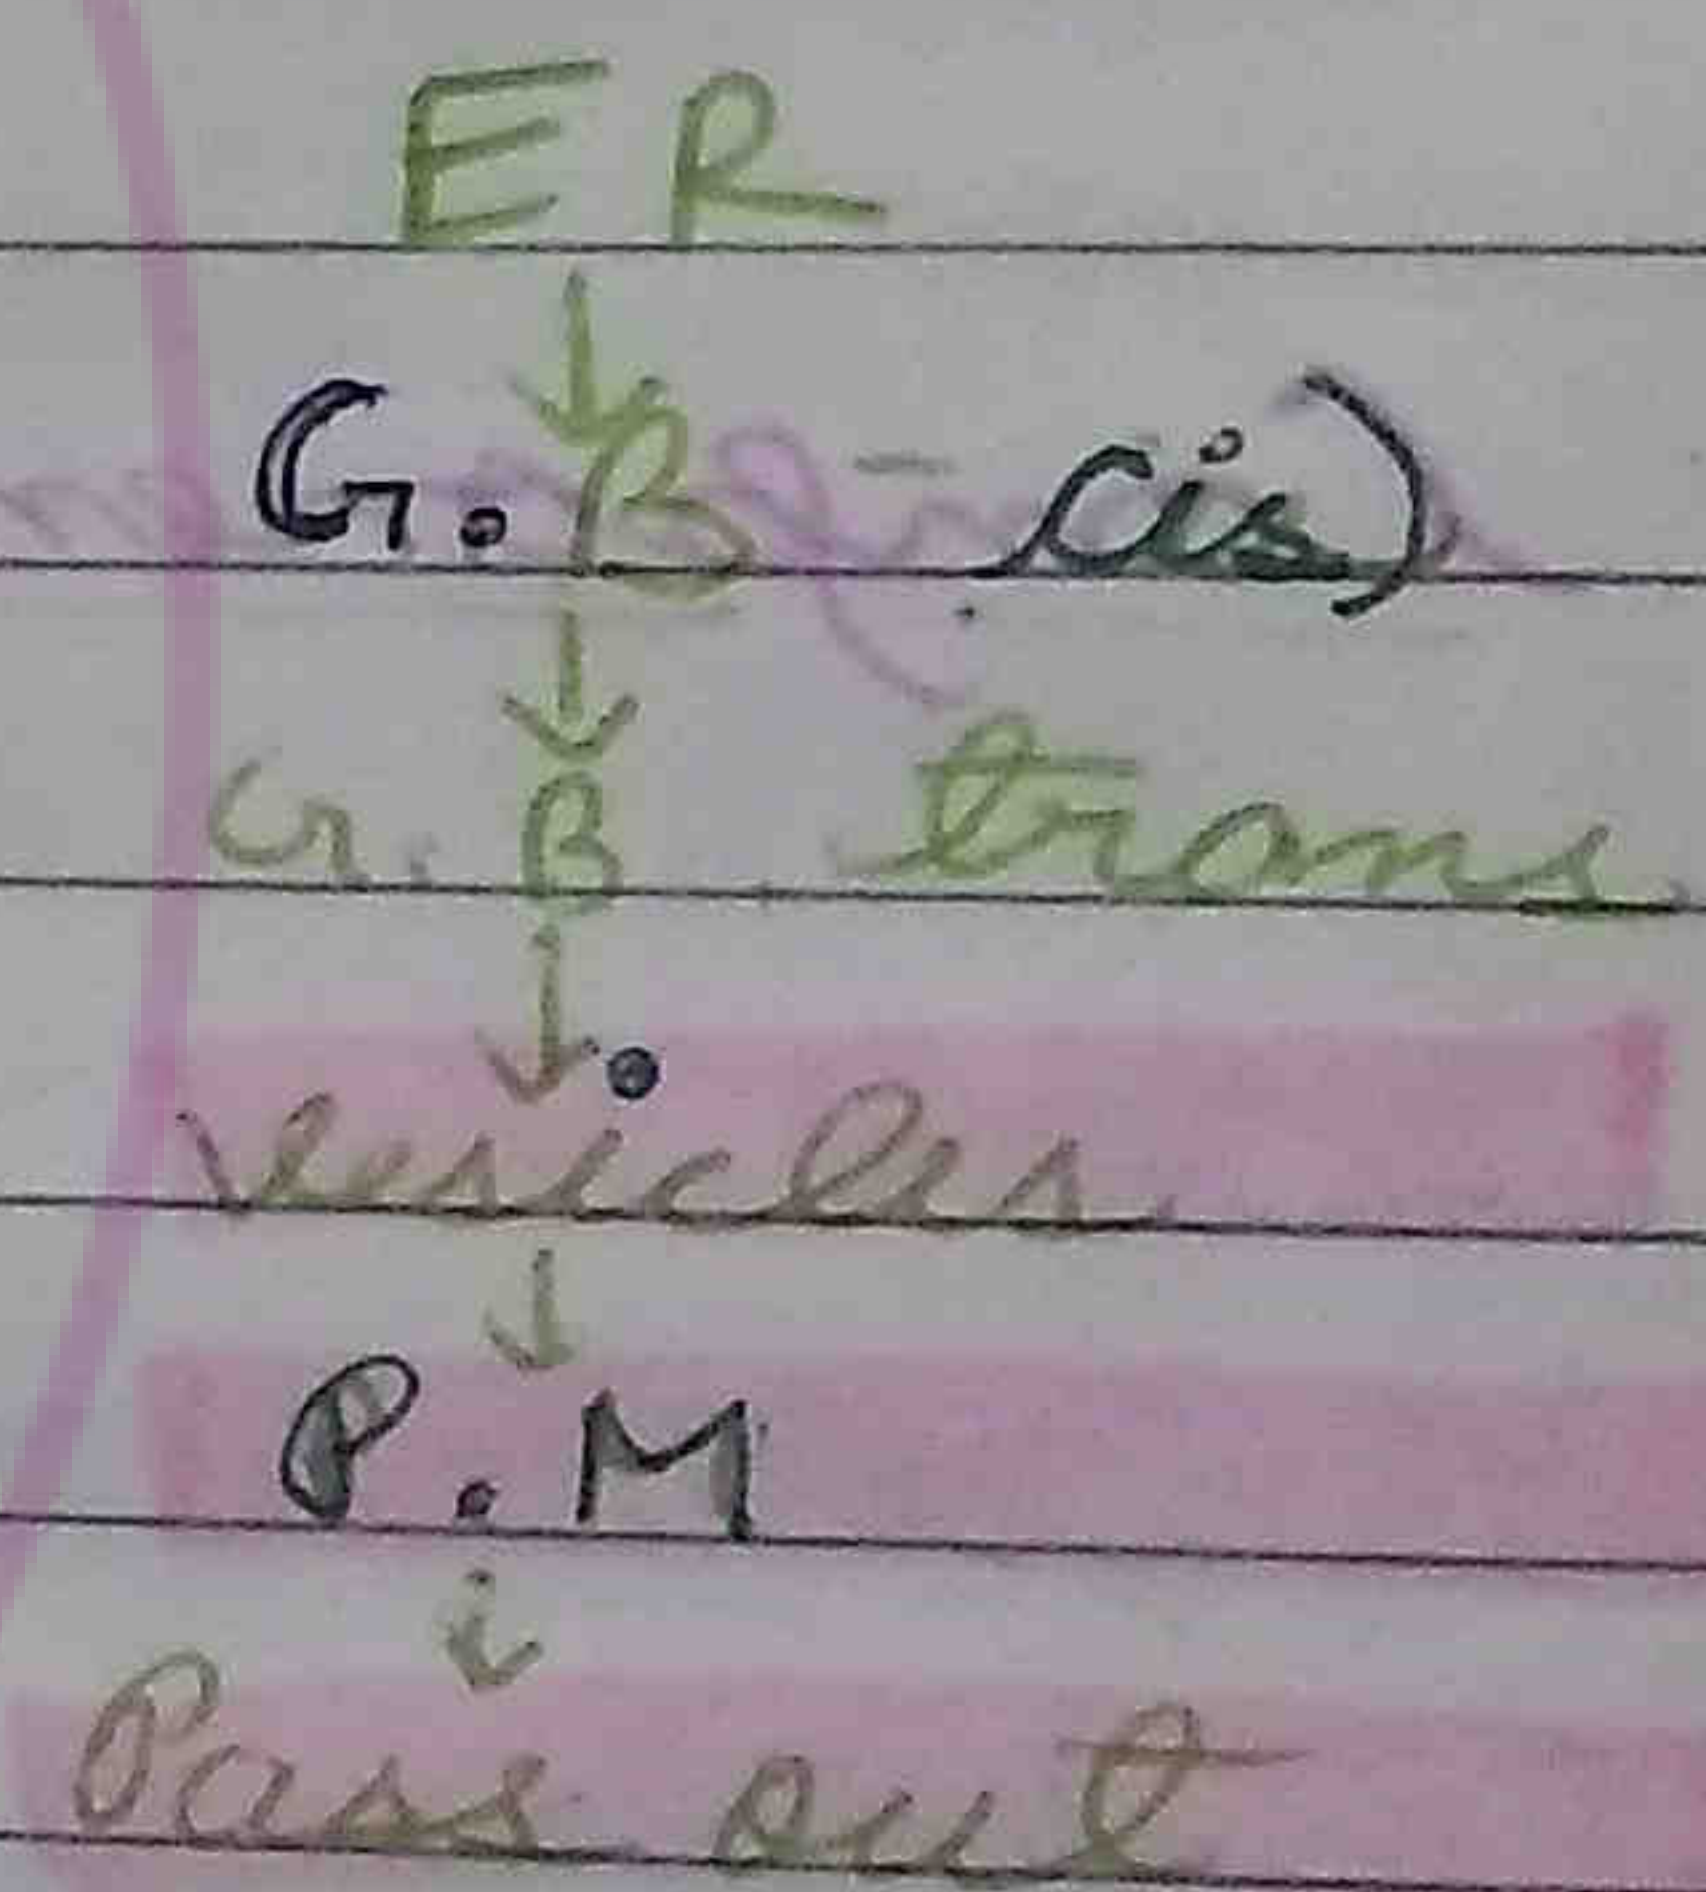 ER
↓
G.B - cis)
↓
G.B trans
↓
Vesicles
↓
P.M
↓
Pass out